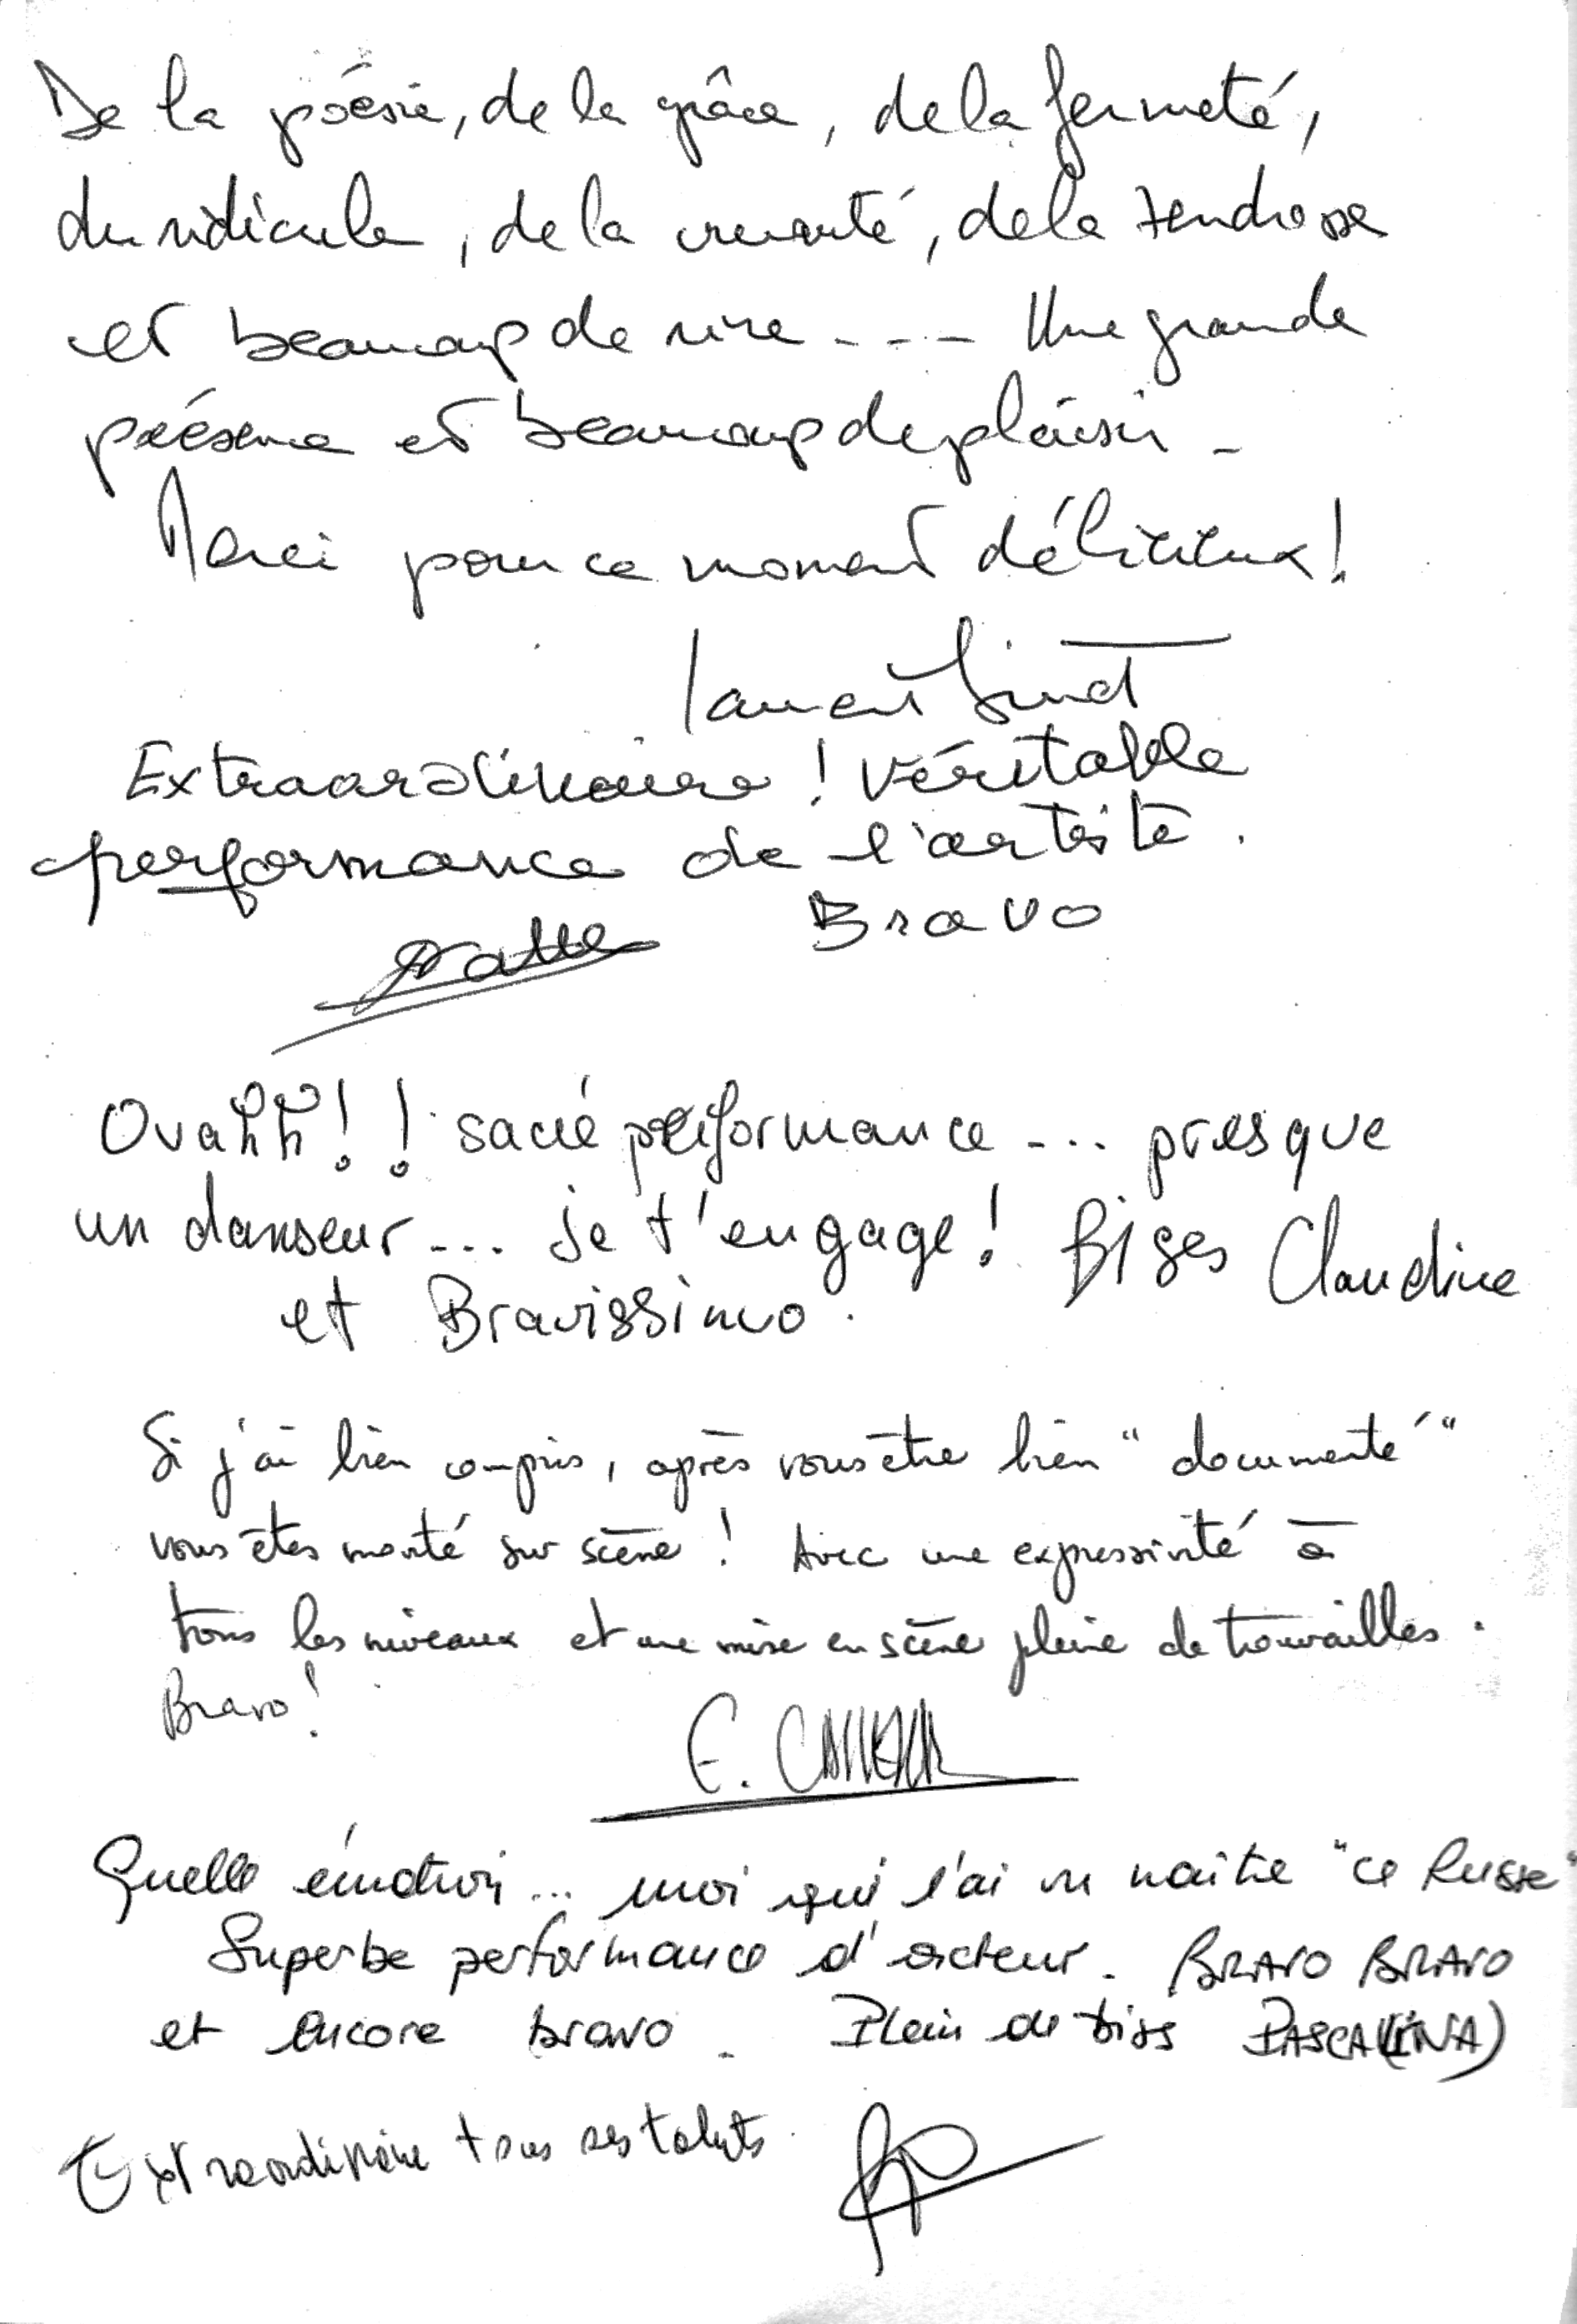 De la poésie, de la grâce, de la fermeté,
du ridicule, de la cruauté, de la tendresse
et beaucoup de rire - - - Une grande
présence et beaucoup de plaisir -
Merci pour ce moment délicieux!
Laurent
Extraordinaire! Véritable
performance de l'artiste.
Bravo
Ouahh!! sacré performance --.. presque
un danseur --.. je t'engage! Bises Claudine
et Bravissimo.
Si j'ai bien compris, après vous être bien "documenté"
vous êtes monté sur scène! Avec une expressivité à
tous les niveaux et une mise en scène pleine de trouvailles.
Bravo!
E.
Quelle émotion... moi qui l'ai vu naître "ce Russe"
Superbe performance d'acteur. BRAVO BRAVO
et encore bravo. Plein de biss PASCAL(INA)
Extraordinaire tous ses talents.